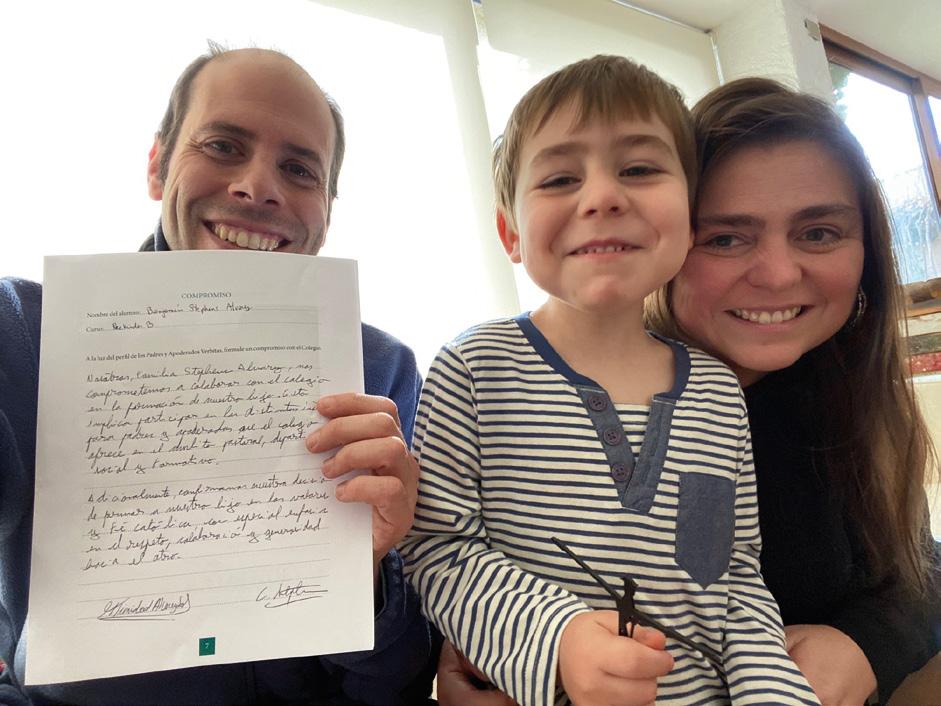 COMPROMISO
Nombre del alumno: Benjamín Stephens Alvarez
Curso: Prekinder B
A la luz del perfil de los Padres y Apoderados Verbitas, formule un compromiso con el Colegio:
Nosotros, Familia Stephens Alvarez, nos
comprometemos a colaborar con el colegio
en la formación de nuestro hijo. Esto
implica participar en las distintas
para padres y apoderados que el colegio
ofrece en el ámbito pastoral,
social y formativo.
Adicionalmente, confirmamos nuestra
de formar a nuestro hijo en los valores
y Fé católica, con especial enfasis
en el respeto, colaboración y generosidad
hacia el otro.
7